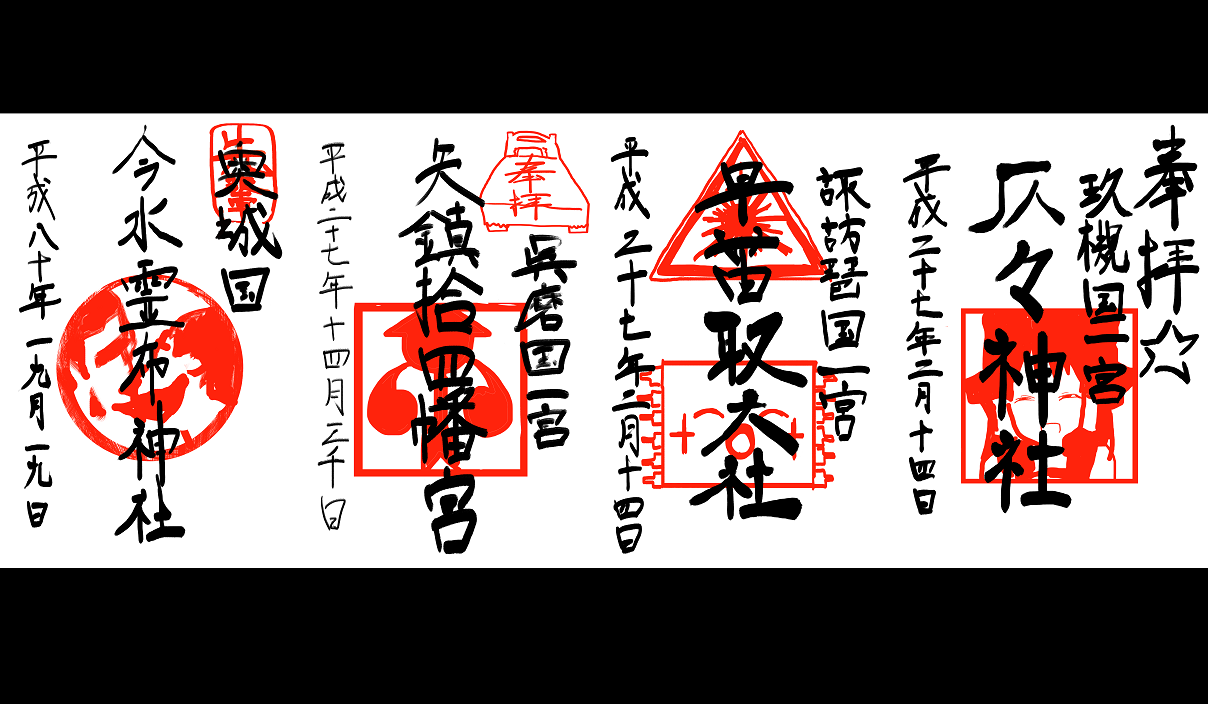 奉拝☆
玖槻国一宮
仄々神社
平成二十七年二月十四日
諏訪琵国一宮
早苗取大社
平成二十七年二月十四日
奉拝
呉磨国一宮
矢鎮拾四幡宮
平成二十七年十四月三千日
奥城国
今水霊布神社
平成八十年一九月一九日